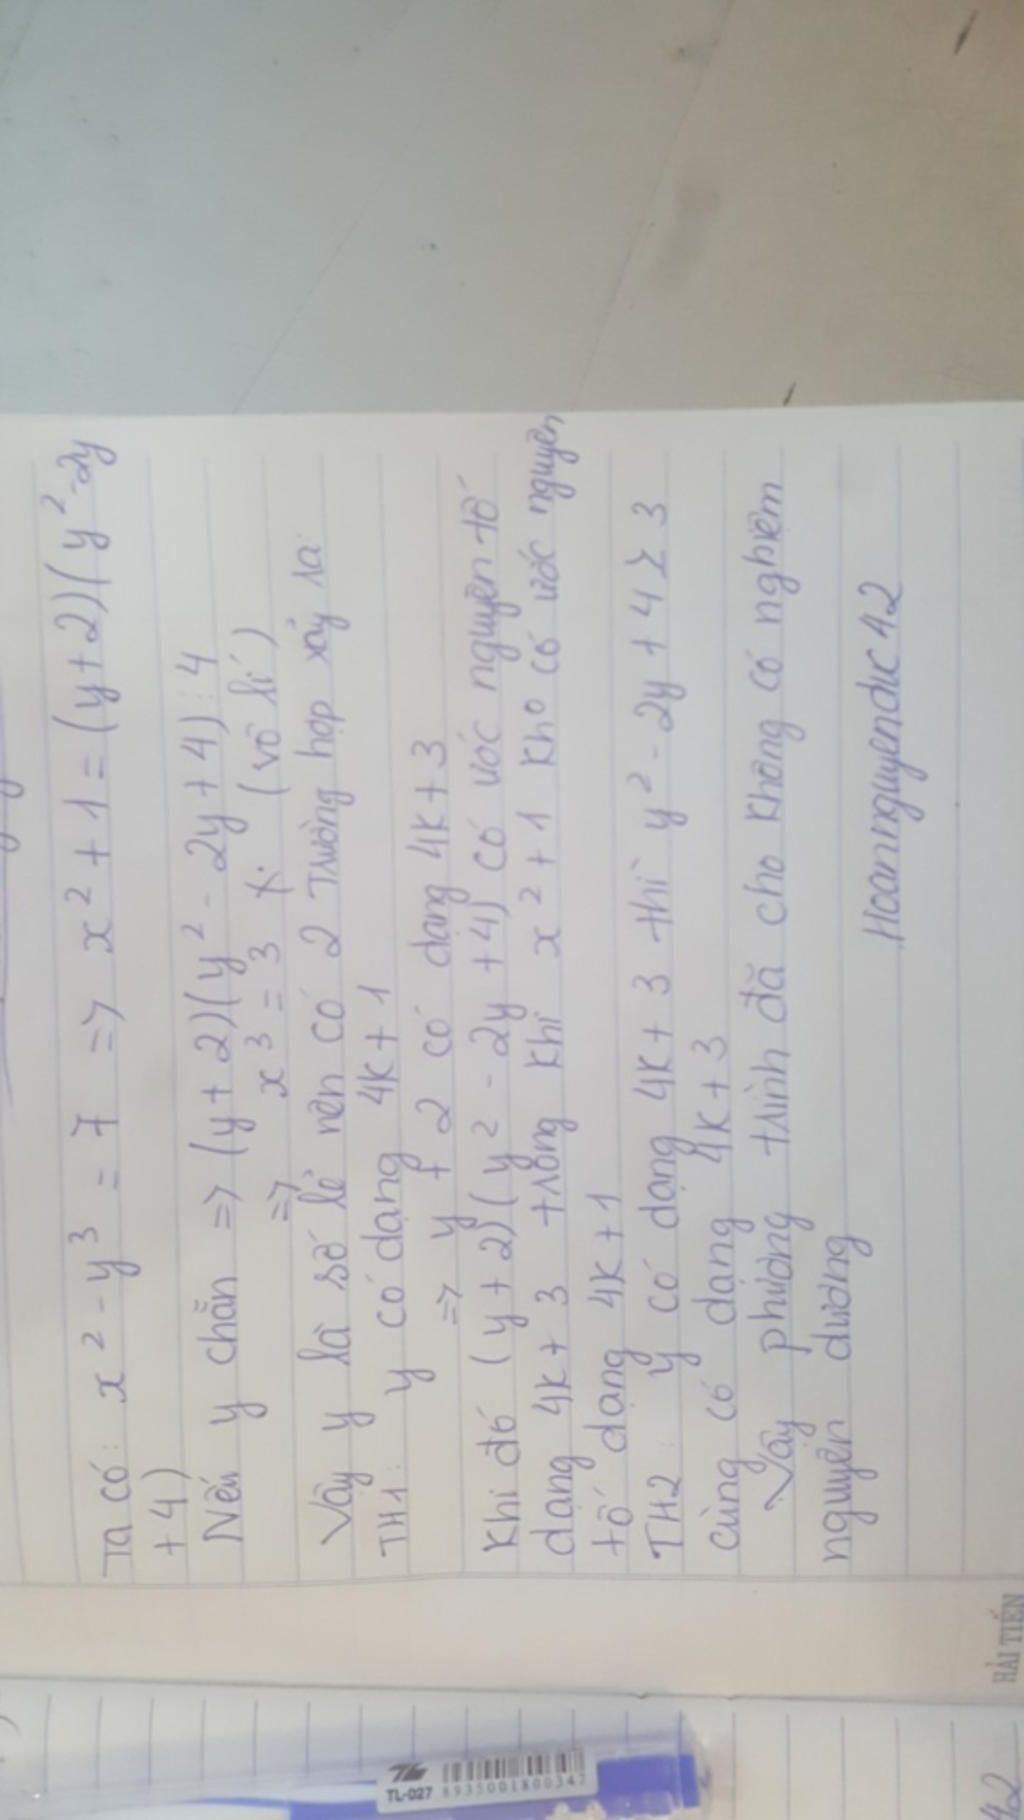 Ta có: x² - y³ = 7 => x² + 1 = (y+2)(y² - 2y
+4)
Nếu y chẵn => (y+2)(y² - 2y + 4) : 4
=> x³ = 3 (vô lí)
Vậy y là số lẻ nên có 2 Trường hợp xảy ra:
TH1: y có dạng 4k+1
=> y + 2 có dạng 4k+3
Khi đó (y+2)(y² - 2y +4) có ước nguyên tố
dạng 4k+3 trong khi x² + 1 kho có ước nguyên
tố dạng 4k+1
TH2: y có dạng 4k+3 thì y² - 2y + 4 ≥ 3
cũng có dạng 4k+3
Vậy phương trình đã cho không có nghiệm
nguyên dương
Hoannguyenduc42
HẢI TIẾN
TL
TL-027
8935001800347
42